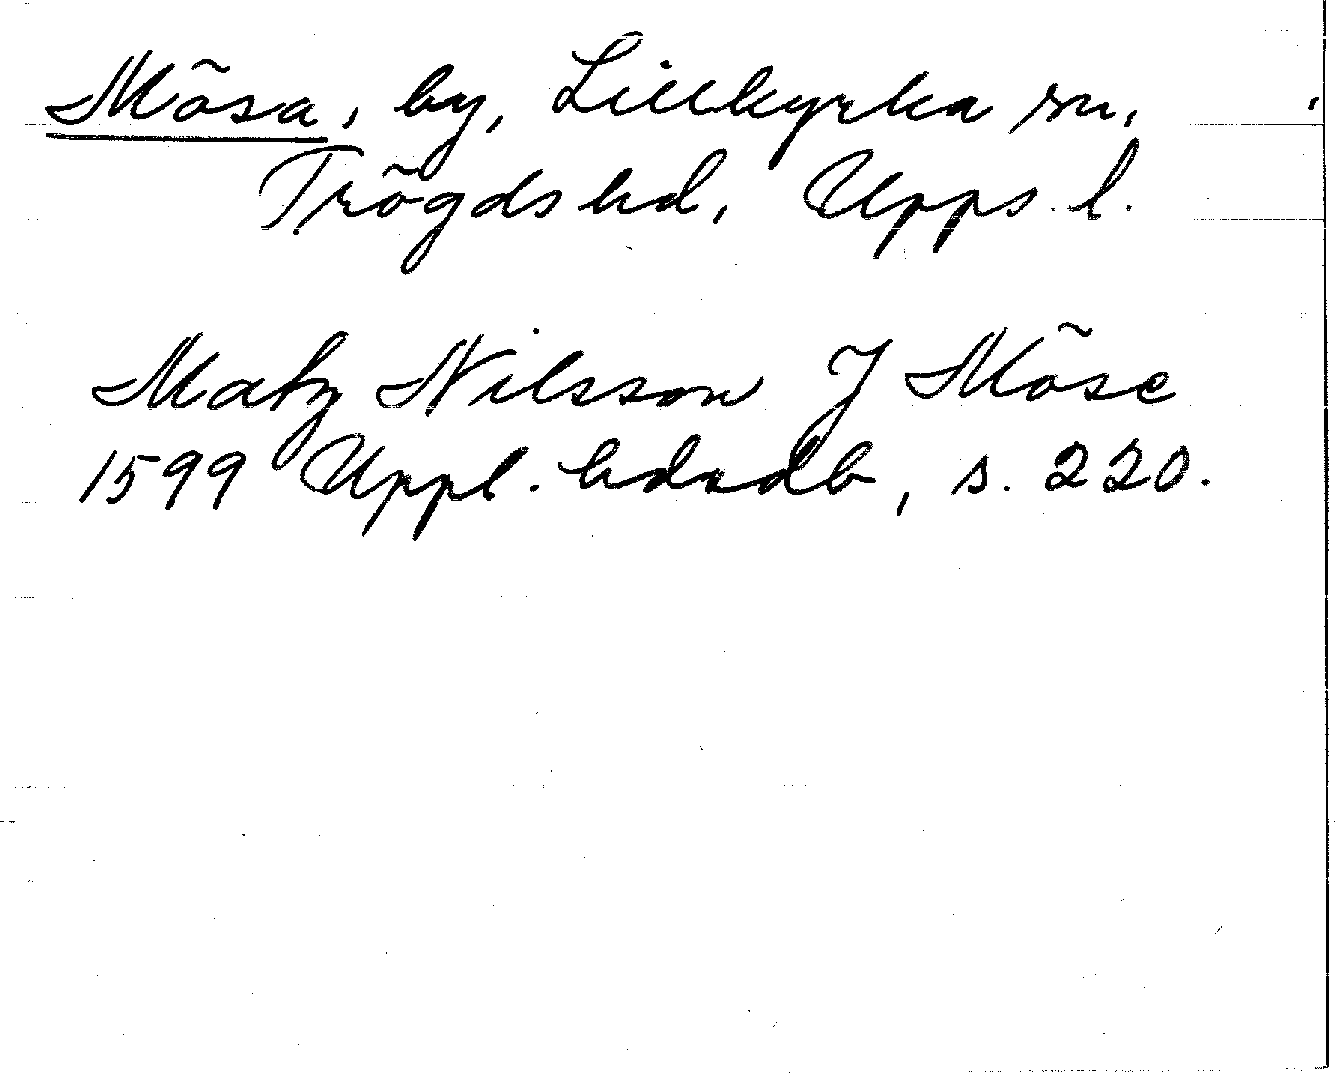 Mösa, by, Lillkyrka sn,
Trögds hd, Upps. l.
Matz Nilsson J Möse
1599 Uppl. hdsdb, s. 220.